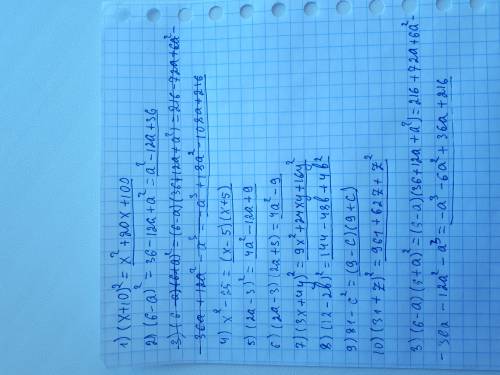 1) (x+10)² = x² + 20x + 100
2) (6-a)² = 36 - 12a + a² = a² - 12a + 36
3) (6-a)(6+a)² = (6-a)(36+12a+a²) = 216 - 72a + 6a² -
- 36a + 12a² - a³ = -a³ + 18a² - 108a + 216
4) x² - 25 = (x-5)(x+5)
5) (2a-3)² = 4a² - 12a + 9
6) (2a-3)(2a+3) = 4a² - 9
7) (3x+4y)² = 9x² + 24xy + 16y²
8) (12-2b)² = 144 - 48b + 4b²
9) 81 - c² = (9-c)(9+c)
10) (31+z)² = 961 + 62z + z²
3) (6-a)(6+a)² = (6-a)(36+12a+a²) = 216 + 72a + 6a² -
- 36a - 12a² - a³ = -a³ - 6a² + 36a + 216